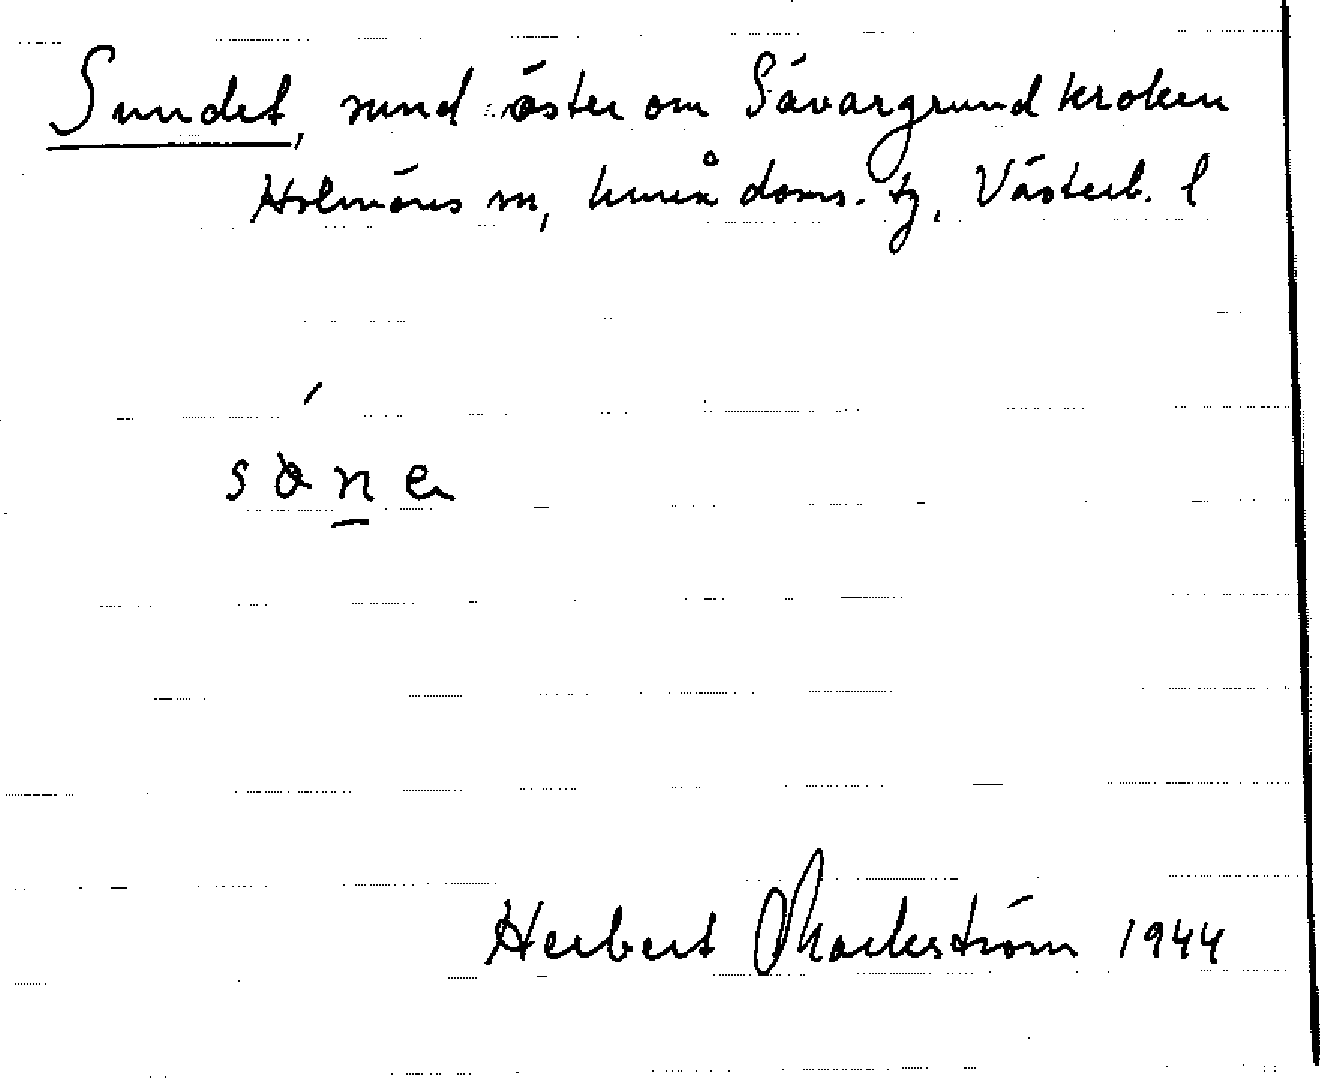 Sundet, sund öster om Sävargrundkroken
Holmöns sn, Umeå doms. tg, Västerb. l
Herbert Markström 1944